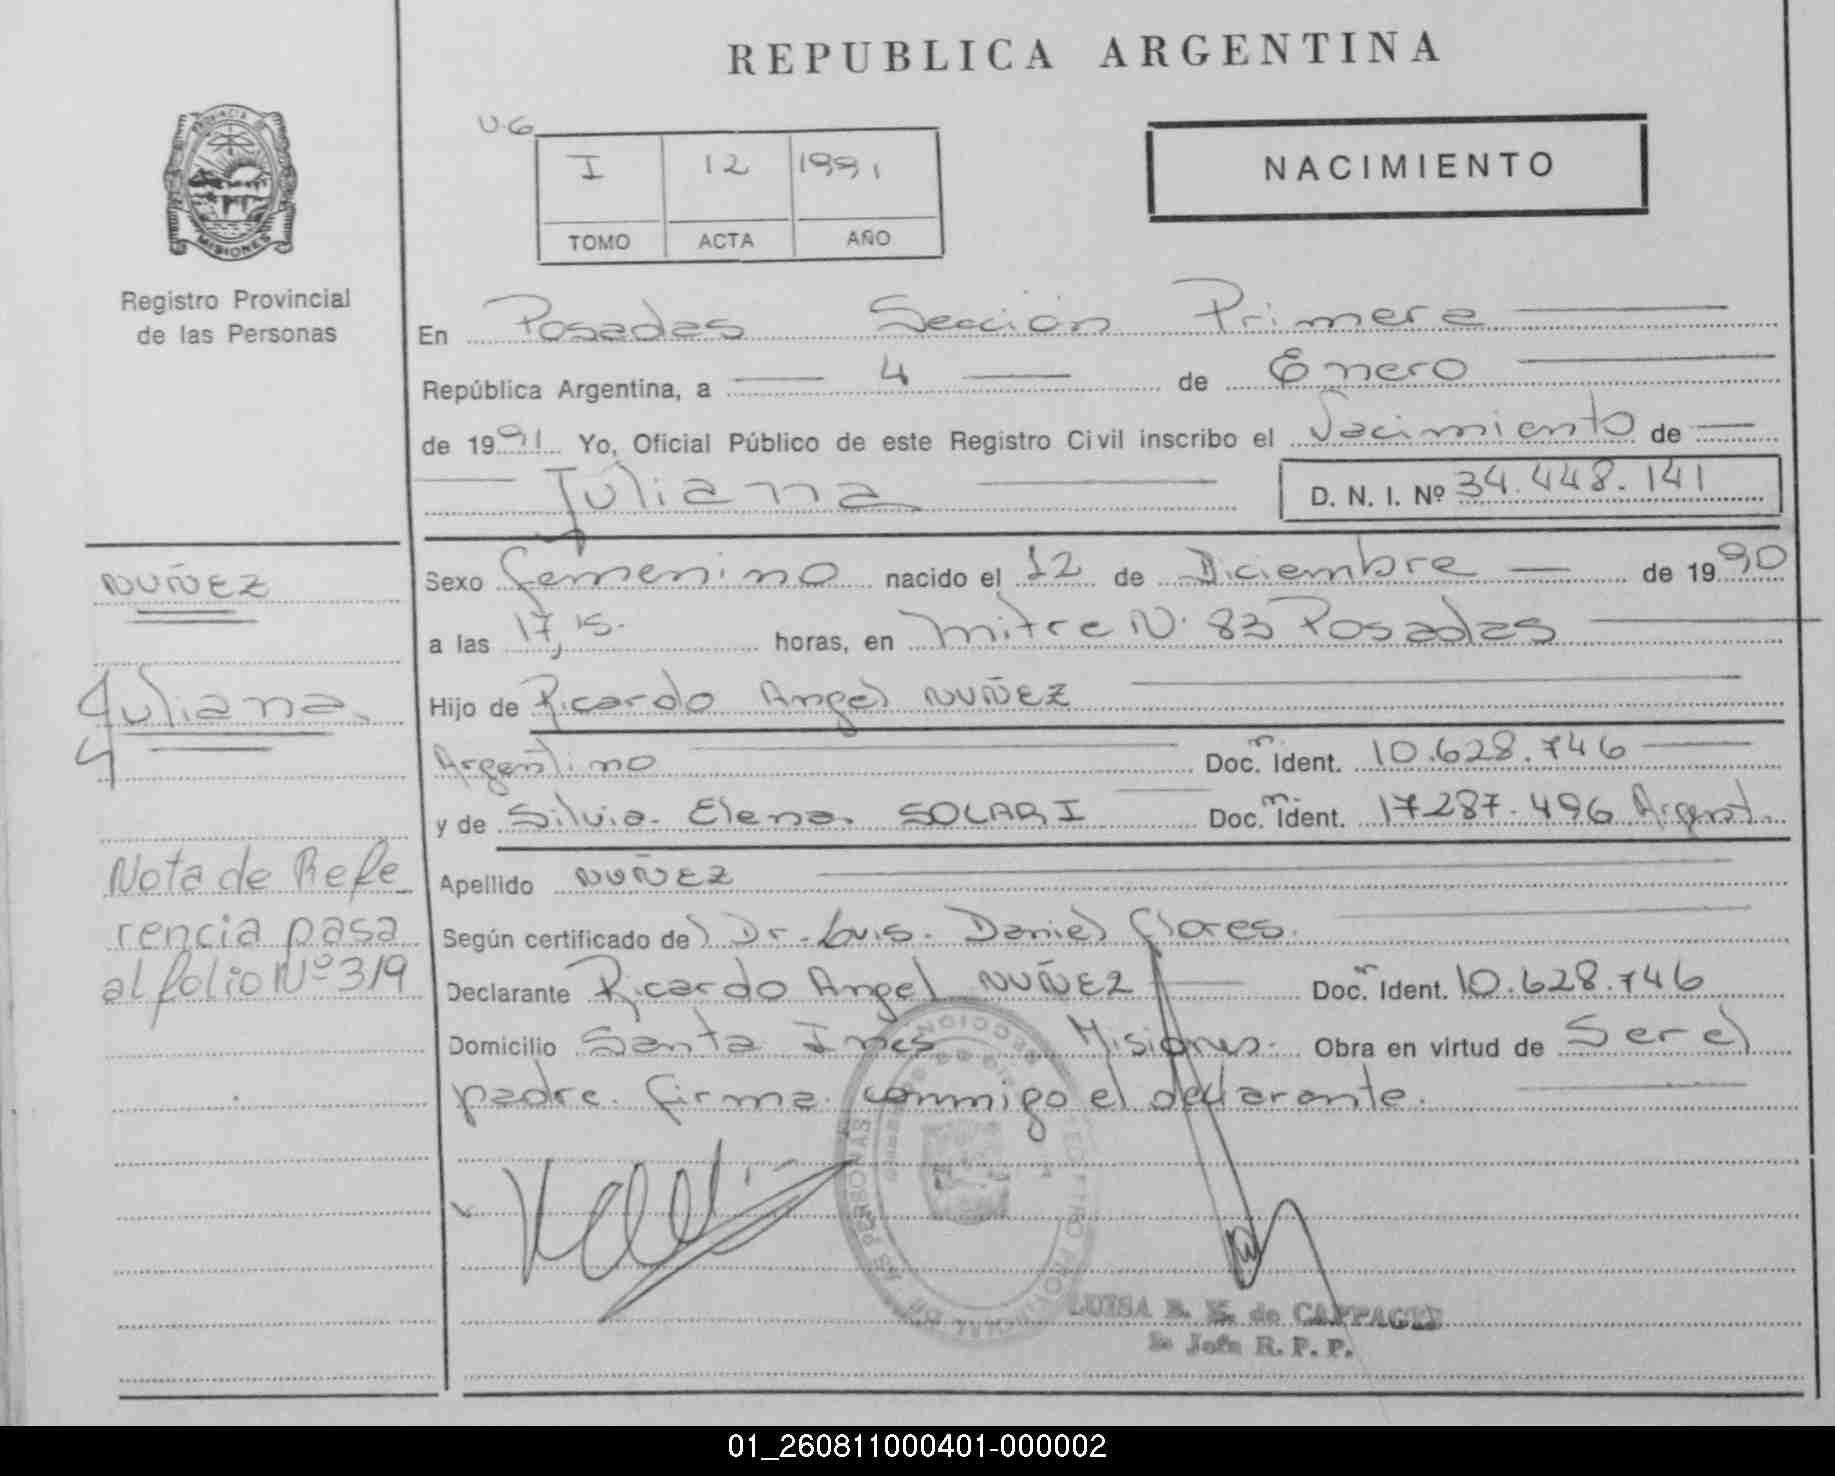 REPUBLICA ARGENTINA
PROVINCIA DE
MISIONES
Registro Provincial
de las Personas
U.G.
I 12 1991
TOMO ACTA AÑO
NACIMIENTO
En Posadas Sección Primera
República Argentina, a 4 de Enero
de 1991 Yo, Oficial Público de este Registro Civil inscribo el Nacimiento de
Juliana D. N. I. Nº 34.448.141
Sexo femenino nacido el 12 de Diciembre de 1990
a las 17,15. horas, en Mitre N. 83 Posadas
Hijo de Ricardo Angel NUÑEZ
Argentino Doc. Ident. 10.628.746
y de Silvia Elena SOLARI Doc. Ident. 17287.496 Argent.
Apellido NUÑEZ
Según certificado del Dr. Luis Daniel Flores.
Declarante Ricardo Angel NUÑEZ Doc. Ident. 10.628.746
Domicilio Santa Ines Misiones. Obra en virtud de Ser el
padre. firma conmigo el declarante.
NUÑEZ
Juliana
Nota de Refe
rencia pasa
al folio Nº 319
REGISTRO PROVINCIAL DE LAS PERSONAS
LUISA E. de
Jefe R. P. P.
01_260811000401-000002